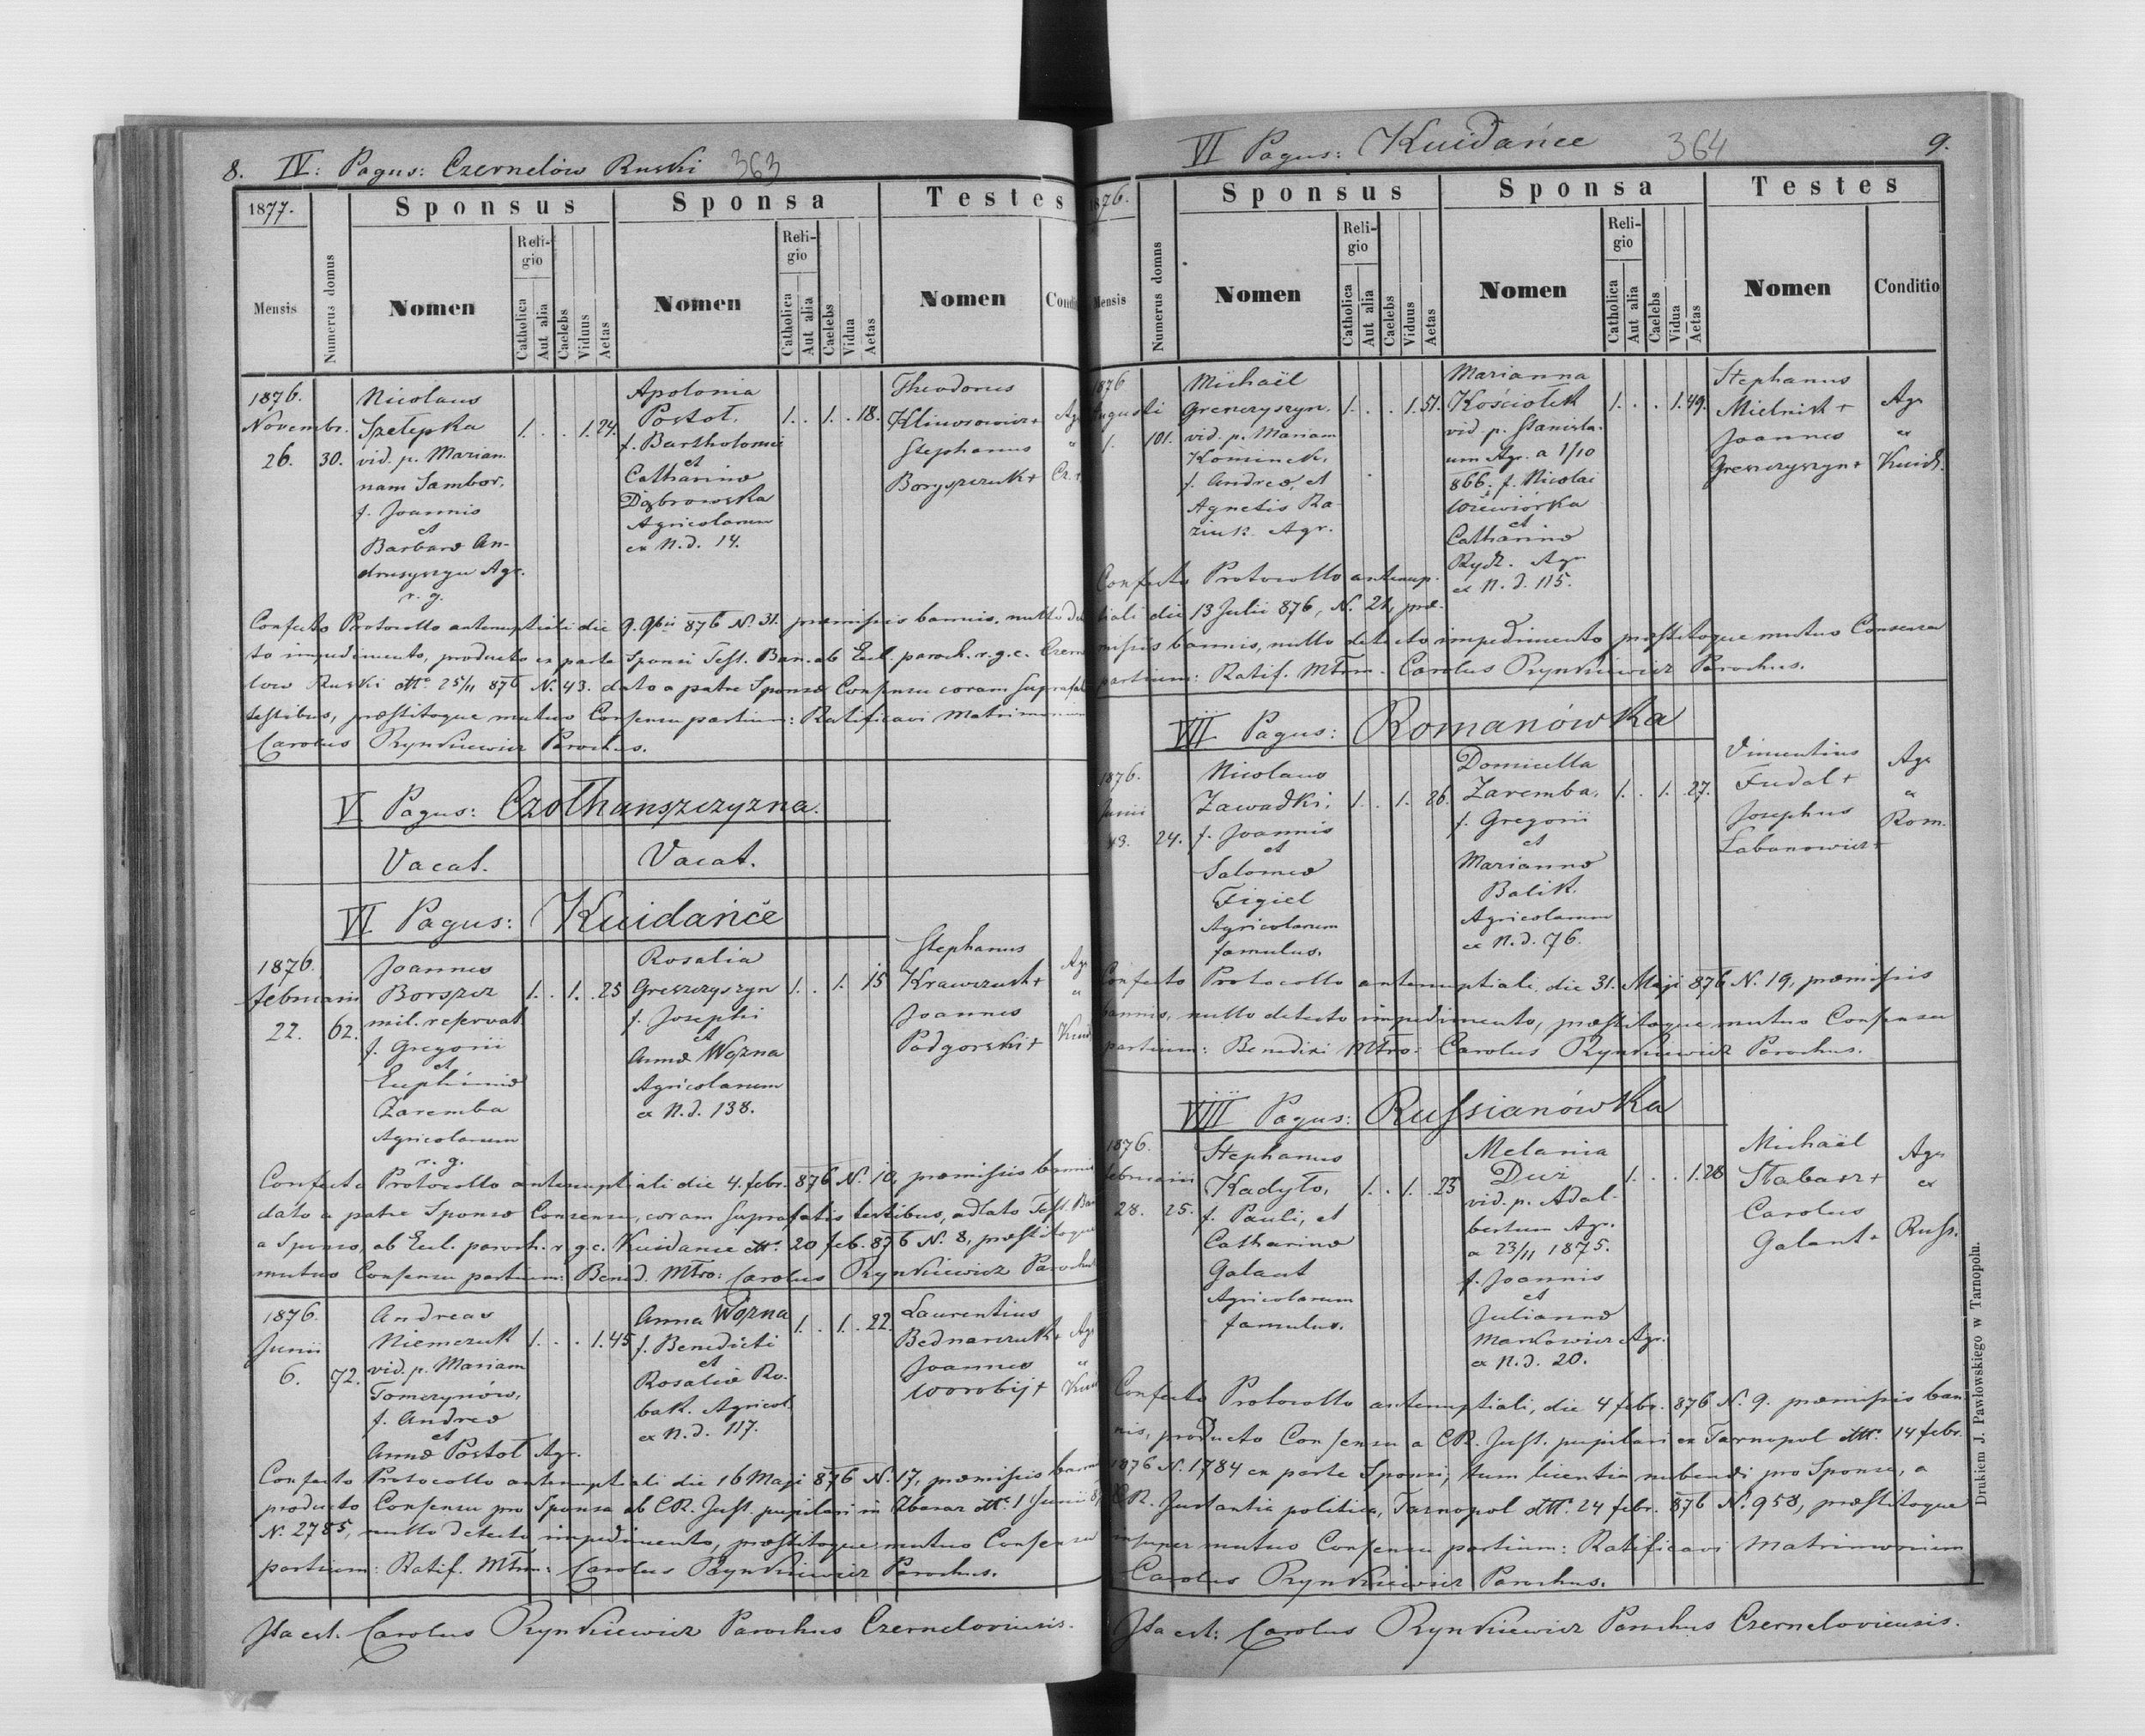 8. IV: Pagus: Czernelów Ruski 363
1877.
Sponsus
Sponsa
Testes
Mensis
Numerus domus
Nomen
Religio
Catholica
Aut alia
Caelebs
Viduus
Aetas
Nomen
Religio
Catholica
Aut alia
Caelebs
Vidua
Aetas
Nomen
1876.
Novembr.
26.
30.
Nicolaus
Szełepka
vid. p. Marian
nam Sambor,
f. Joannis
et
Barbaræ An-
druszyszyn Agr.
r. g.
1. . . 1. 24.
Apolonia
Postoł,
f. Bartholomei
et
Catharinæ
Dąbrowska
Agricolarum
ex N. d. 14.
1. . 1. . 18.
Theodorus
Stephanus
Boryszczuk +
Confecto Protocollo antenuptiali die 9. 9bris 876 N. 31. præmissis bannis, nullo
to impedimento, producto ex parte Sponsi Test. Ban. ab Eccl. paroch. r. g. c.
low Ruski dtto 25/11 876 N. 43. dato a patre Sponsæ Consensu coram
testibus, præstitoque mutuo Consensu partium: Ratificavi
Carolus Rynkiewicz Parochus.
V. Pagus: Czołhanszczyzna.
Vacat. Vacat.
VI. Pagus: Kuidańce
1876.
februarii
22.
62.
Joannes
Borszcz
mil. reservat.
f. Gregorii
et
Euphimiæ
Zaremba
Agricolarum
r. g.
1. . 1. . 25
Rosalia
Greszczyszyn
f. Josephi
et
Annæ Wozna
Agricolarum
ex N. d. 138.
1. . 1. 15
Stephanus
Krawczuk +
Joannes
Podgorski +
Confecto Protocollo antenuptiali die 4. febr. 876 N. 10, præmissis
dato a patre Sponsæ Consensu, coram suprafatis testibus, adlato Test.
a Sponso, ab Eccl. paroch. r. g. c. Kuidance dtto 20 feb. 876 N. 8,
mutuo Consensu partium: Bened. Mtro: Carolus Rynkiewicz
1876.
Junii
6.
72.
Andreas
Niemczuk
vid. p. Mariam
Tomczynów,
f. Andreæ
et
Annæ Postoł Agr.
1. . . 1. 45
Anna Wozna
f. Benedicti
et
Rosaliæ Ro-
bak. Agricol.
ex N. d. 117.
1. . 1. . 22.
Laurentius
Bednarczuk +
Joannes
Worobij +
Confecto Protocollo antenuptiali die 16 Maji 876 N. 17, præmissis
producto Consensu pro Sponsa ab CR. Just. pupilari in Zbaraz dtto 1 Junii
N. 2785, nullo detecto impedimento, præstitoque mutuo Consensu
partium: Ratif. Mtrm: Carolus Rynkiewicz Parochus.
Ita est. Carolus Rynkiewicz Parochus Czerneloviensis.
VI Pagus: Kuidańce 364 9.
Sponsus
Sponsa
Testes
Mensis
Numerus domus
Nomen
Religio
Catholica
Aut alia
Caelebs
Viduus
Aetas
Nomen
Religio
Catholica
Aut alia
Caelebs
Vidua
Aetas
Nomen
Conditio
1876
Augusti
1.
101.
Michaël
Grenczyszyn,
vid. p. Mariam
Kominek,
f. Andreæ, et
Agnetis Ra-
ziuk Agr.
1. . . 1. 51.
Marianna
Kościołek
vid. p. Stanisla-
um Agr. a 1/10
866. f. Nicolai
Wiewiórka
et
Catharinæ
Rydz. Agr.
ex N. d. 115.
1. . . 1. 49.
Stephanus
Mielnik +
Joannes
Greszczyszyn +
Agr
ex
Kuid.
Confecto Protocollo antenup-
tiali die 13 Julii 876, N. 21, præ-
missis bannis, nullo detecto impedimento præstitoque mutuo Consensu
partium: Ratif. Mtrm. Carolus Rynkiewicz Parochus.
VII. Pagus: Romanówka
1876.
Junii
13.
24.
Nicolaus
Zawadki,
f. Joannis
et
Salomeæ
Figiel
Agricolarum
famulus.
1. . 1. 26.
Domicella
Zaremba,
f. Gregorii
et
Mariannæ
Balik.
Agricolarum
ex N. d. 76.
1. . 1. . 27.
Vincentius
Fudal +
Josephus
Łabanowicz +
Agr
ex
Rom.
Confecto Protocollo antenuptiali, die 31. Maji 876 N. 19, præmissis
bannis, nullo detecto impedimento, præstitoque mutuo Consensu
partium: Benedixi Mtro: Carolus Rynkiewicz Parochus.
VIII Pagus: Russianówka
1876.
februarii
28.
25.
Stephanus
Kadyło,
f. Pauli, et
Catharinæ
Galant
Agricolarum
famulus.
1. . 1. . 25
Melania
Duzi
vid. p. Adal-
bertum Agr.
a 23/11 1875.
f. Joannis
et
Juliannæ
Markowicz Agr.
ex N. d. 20.
1. . . 1. 28
Michaël
Stabasz +
Carolus
Galant +
Agr
ex
Russ.
Confecto Protocollo antenuptiali, die 4 febr. 876 N. 9. præmissis ban-
nis, producto Consensu a CR. Just. pupilari ex Tarnopol dtto 14 febr.
1876 N. 1784 ex parte Sponsi, tum licentia nubendi pro Sponso, a
CR. Instantia politica, Tarnopol dtto 24 febr. 876 N. 958, præstitoque
insuper mutuo Consensu partium: Ratificavi Matrimonium
Carolus Rynkiewicz Parochus.
Ita est: Carolus Rynkiewicz Parochus Czerneloviensis.
Drukiem J. Pawłowskiego w Tarnopolu.